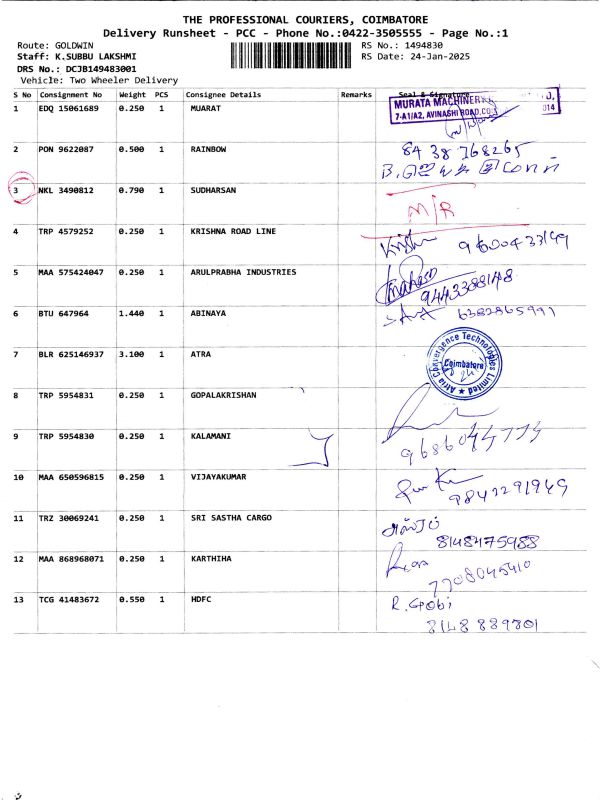 THE PROFESSIONAL COURIERS, COIMBATORE
Delivery Runsheet - PCC - Phone No.:0422-3505555 - Page No.:1
Route: GOLDWIN RS No.: 1494830
Staff: K.SUBBU LAKSHMI RS Date: 24-Jan-2025
DRS No.: DCJB149483001
Vehicle: Two Wheeler Delivery
S No Consignment No Weight PCS Consignee Details Remarks Seal & Signature
1 EDQ 15061689 0.250 1 MUARAT
MURATA MACHINERY
7-A1/A2, AVINASHI ROAD, CO 014
2 PON 9622087 0.500 1 RAINBOW 8438768265
3 NKL 3490812 0.790 1 SUDHARSAN
M/R
4 TRP 4579252 0.250 1 KRISHNA ROAD LINE Krishn 9600433149
5 MAA 575424047 0.250 1 ARULPRABHA INDUSTRIES
9443388148
6 BTU 647964 1.440 1 ABINAYA 6382865991
7 BLR 625146937 3.100 1 ATRA
Atria Convergence Technologies Limited
Coimbatore
8 TRP 5954831 0.250 1 GOPALAKRISHAN
9 TRP 5954830 0.250 1 KALAMANI
9686044774
10 MAA 650596815 0.250 1 VIJAYAKUMAR
9842291949
11 TRZ 30069241 0.250 1 SRI SASTHA CARGO
8148475988
12 MAA 868968071 0.250 1 KARTHIHA
7708045410
13 TCG 41483672 0.550 1 HDFC R. Gobi
8148889801